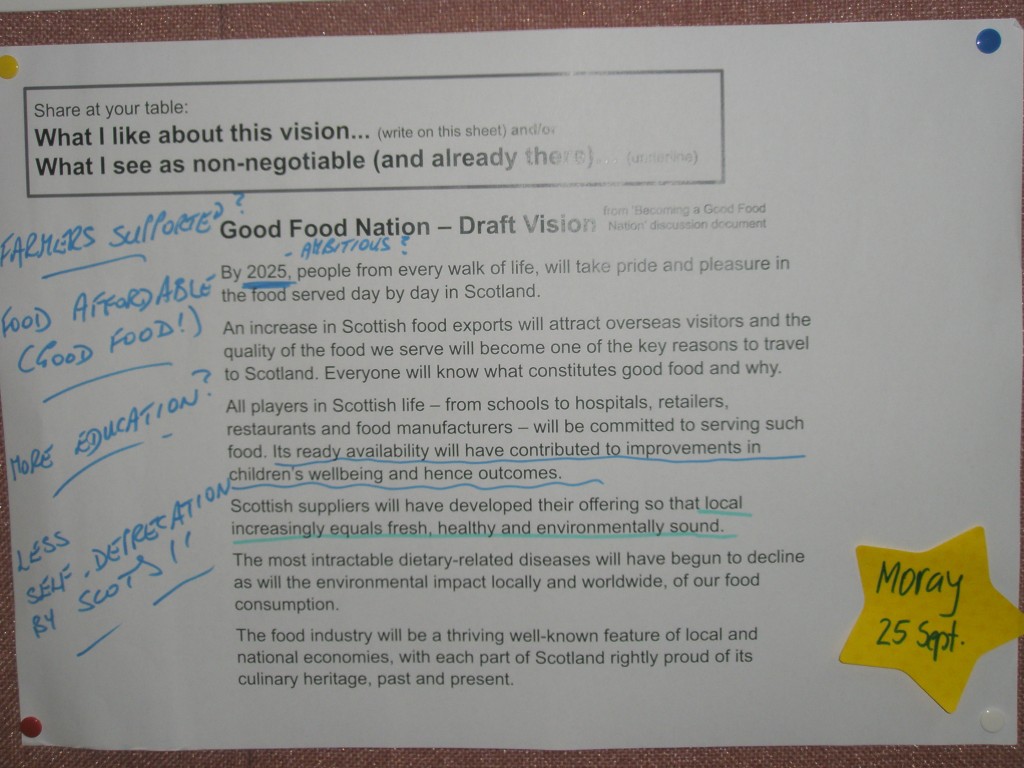 Share at your table:
What I like about this vision... (write on this sheet) and/or
What I see as non-negotiable (and already there)... (underline)
FARMERS SUPPORTED?
Good Food Nation – Draft Vision
from 'Becoming a Good Food
Nation' discussion document
- AMBITIOUS?
By 2025, people from every walk of life, will take pride and pleasure in
the food served day by day in Scotland.
FOOD AFFORDABLE
(GOOD FOOD!)
An increase in Scottish food exports will attract overseas visitors and the
quality of the food we serve will become one of the key reasons to travel
to Scotland. Everyone will know what constitutes good food and why.
MORE EDUCATION?
All players in Scottish life – from schools to hospitals, retailers,
restaurants and food manufacturers – will be committed to serving such
food. Its ready availability will have contributed to improvements in
children's wellbeing and hence outcomes.
LESS
SELF-DEPRECATION
BY SCOTS!!
Scottish suppliers will have developed their offering so that local
increasingly equals fresh, healthy and environmentally sound.
The most intractable dietary-related diseases will have begun to decline
as will the environmental impact locally and worldwide, of our food
consumption.
The food industry will be a thriving well-known feature of local and
national economies, with each part of Scotland rightly proud of its
culinary heritage, past and present.
Moray
25 Sept.